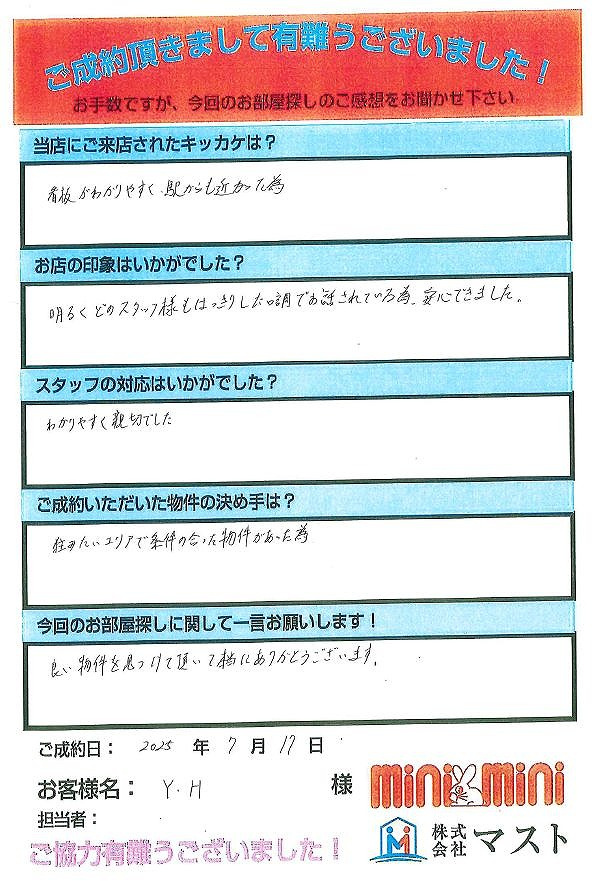 ご成約頂きまして有難うございました！
お手数ですが、今回のお部屋探しのご感想をお聞かせ下さい
当店にご来店されたキッカケは？
看板がわかりやすく、駅からも近かった為
お店の印象はいかがでした？
明るくどのスタッフ様もはっきりした口調でお話されている為、安心できました。
スタッフの対応はいかがでした？
わかりやすく親切でした
ご成約いただいた物件の決め手は？
住みたいエリアで条件の合った物件があった為
今回のお部屋探しに関して一言お願いします！
良い物件を見つけて頂いて本当にありがとうございます。
ご成約日： 2025 年 7 月 17 日
お客様名： Y.H 様
minimini
担当者：
株式会社マスト
ご協力有難うございました！